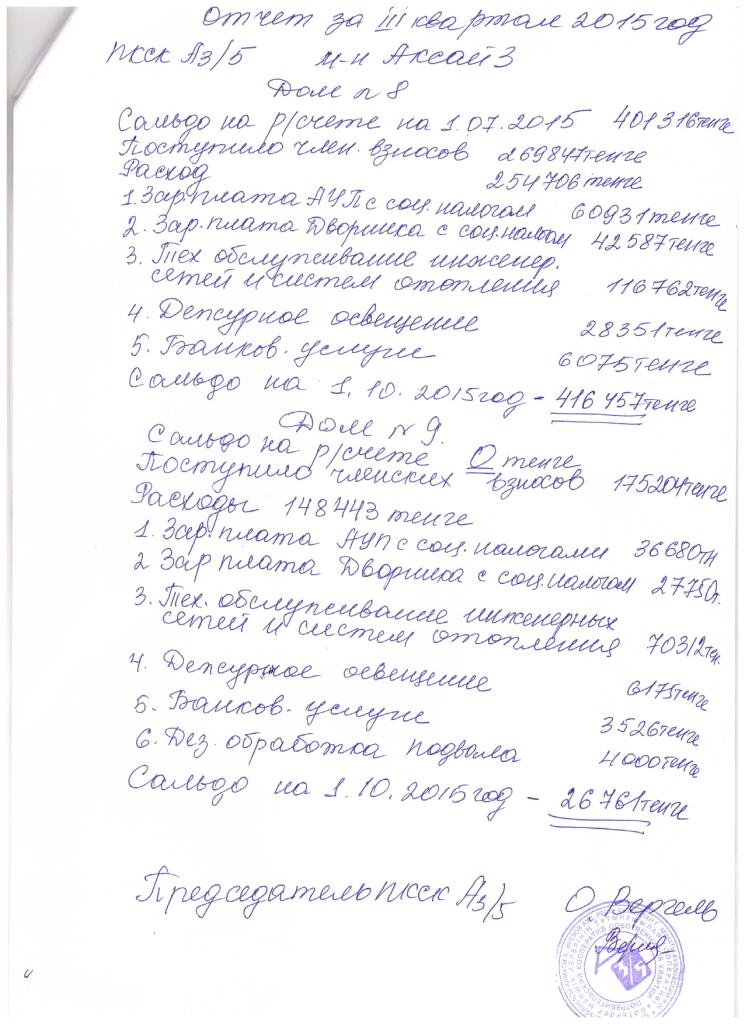 Отчет за III квартал 2015 год
ПКСК А3/5 м-н Аксай 3
Дом № 8
Сальдо на р/счете на 1.07.2015 401316 тенге
Поступило член. взносов 269847 тенге
Расход 254706 тенге
1. Зар.плата АУП с соц. налогом 60931 тенге
2. Зар. плата Дворника с соц. налогом 42587 тенге
3. Тех обслуживание инженер.
сетей и систем отопления 116762 тенге
4. Дежурное освещение 28351 тенге
5. Банков. услуги 6075 тенге
Сальдо на 1.10.2015 год - 416457 тенге
Дом № 9.
Сальдо на р/счете 0 тенге
Поступило членских взносов 175204 тенге
Расходы 148443 тенге
1. Зар. плата АУП с соц. налогами 36680 тн
2 Зар плата Дворника с соц. налогом 27750 т.
3. Тех. обслуживание инженерных
сетей и систем отопления 70312 тен.
4. Дежурное освещение 6175 тенге
5. Банков. услуги 3526 тенге
6. Дез. обработка подвала 4000 тенге
Сальдо на 1.10.2015 год - 26761 тенге
Председатель ПКСК А3/5 О Вергель